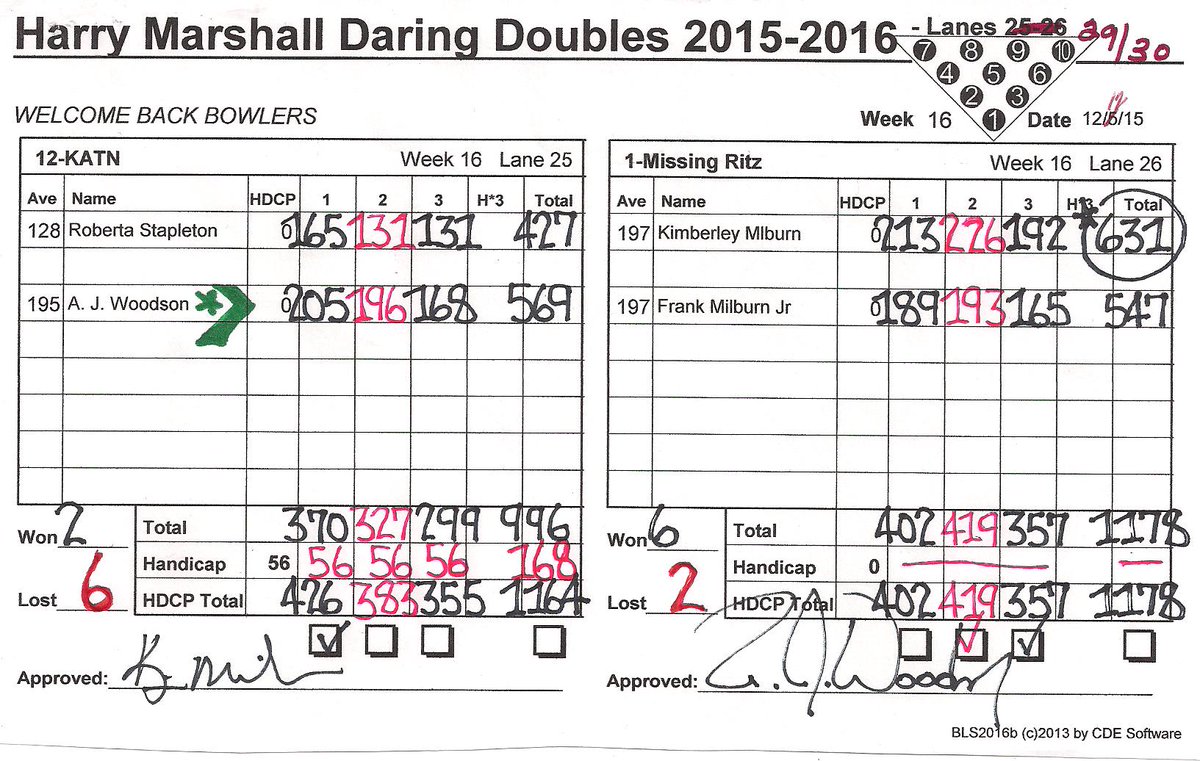 Harry Marshall Daring Doubles 2015-2016 - Lanes 25-26 29/30
7 8 9 10
4 5 6
2 3
1
WELCOME BACK BOWLERS
Week 16 Date 12/ /15
12-KATN Week 16 Lane 25
Ave Name HDCP 1 2 3 H*3 Total
128 Roberta Stapleton 0 165 131 131 427
195 A. J. Woodson * 0 205 196 168 569
Won 2
Total 370 327 299 996
Handicap 56 56 56 56 168
Lost 6
HDCP Total 426 383 355 1164
Approved:
1-Missing Ritz Week 16 Lane 26
Ave Name HDCP 1 2 3 H*3 Total
197 Kimberley Mlburn 0 213 226 192 *631
197 Frank Milburn Jr 0 189 193 165 547
Won 6
Total 402 419 357 1178
Handicap 0
Lost 2
HDCP Total 402 419 357 1178
Approved: A. J. Woodson
BLS2016b (c)2013 by CDE Software